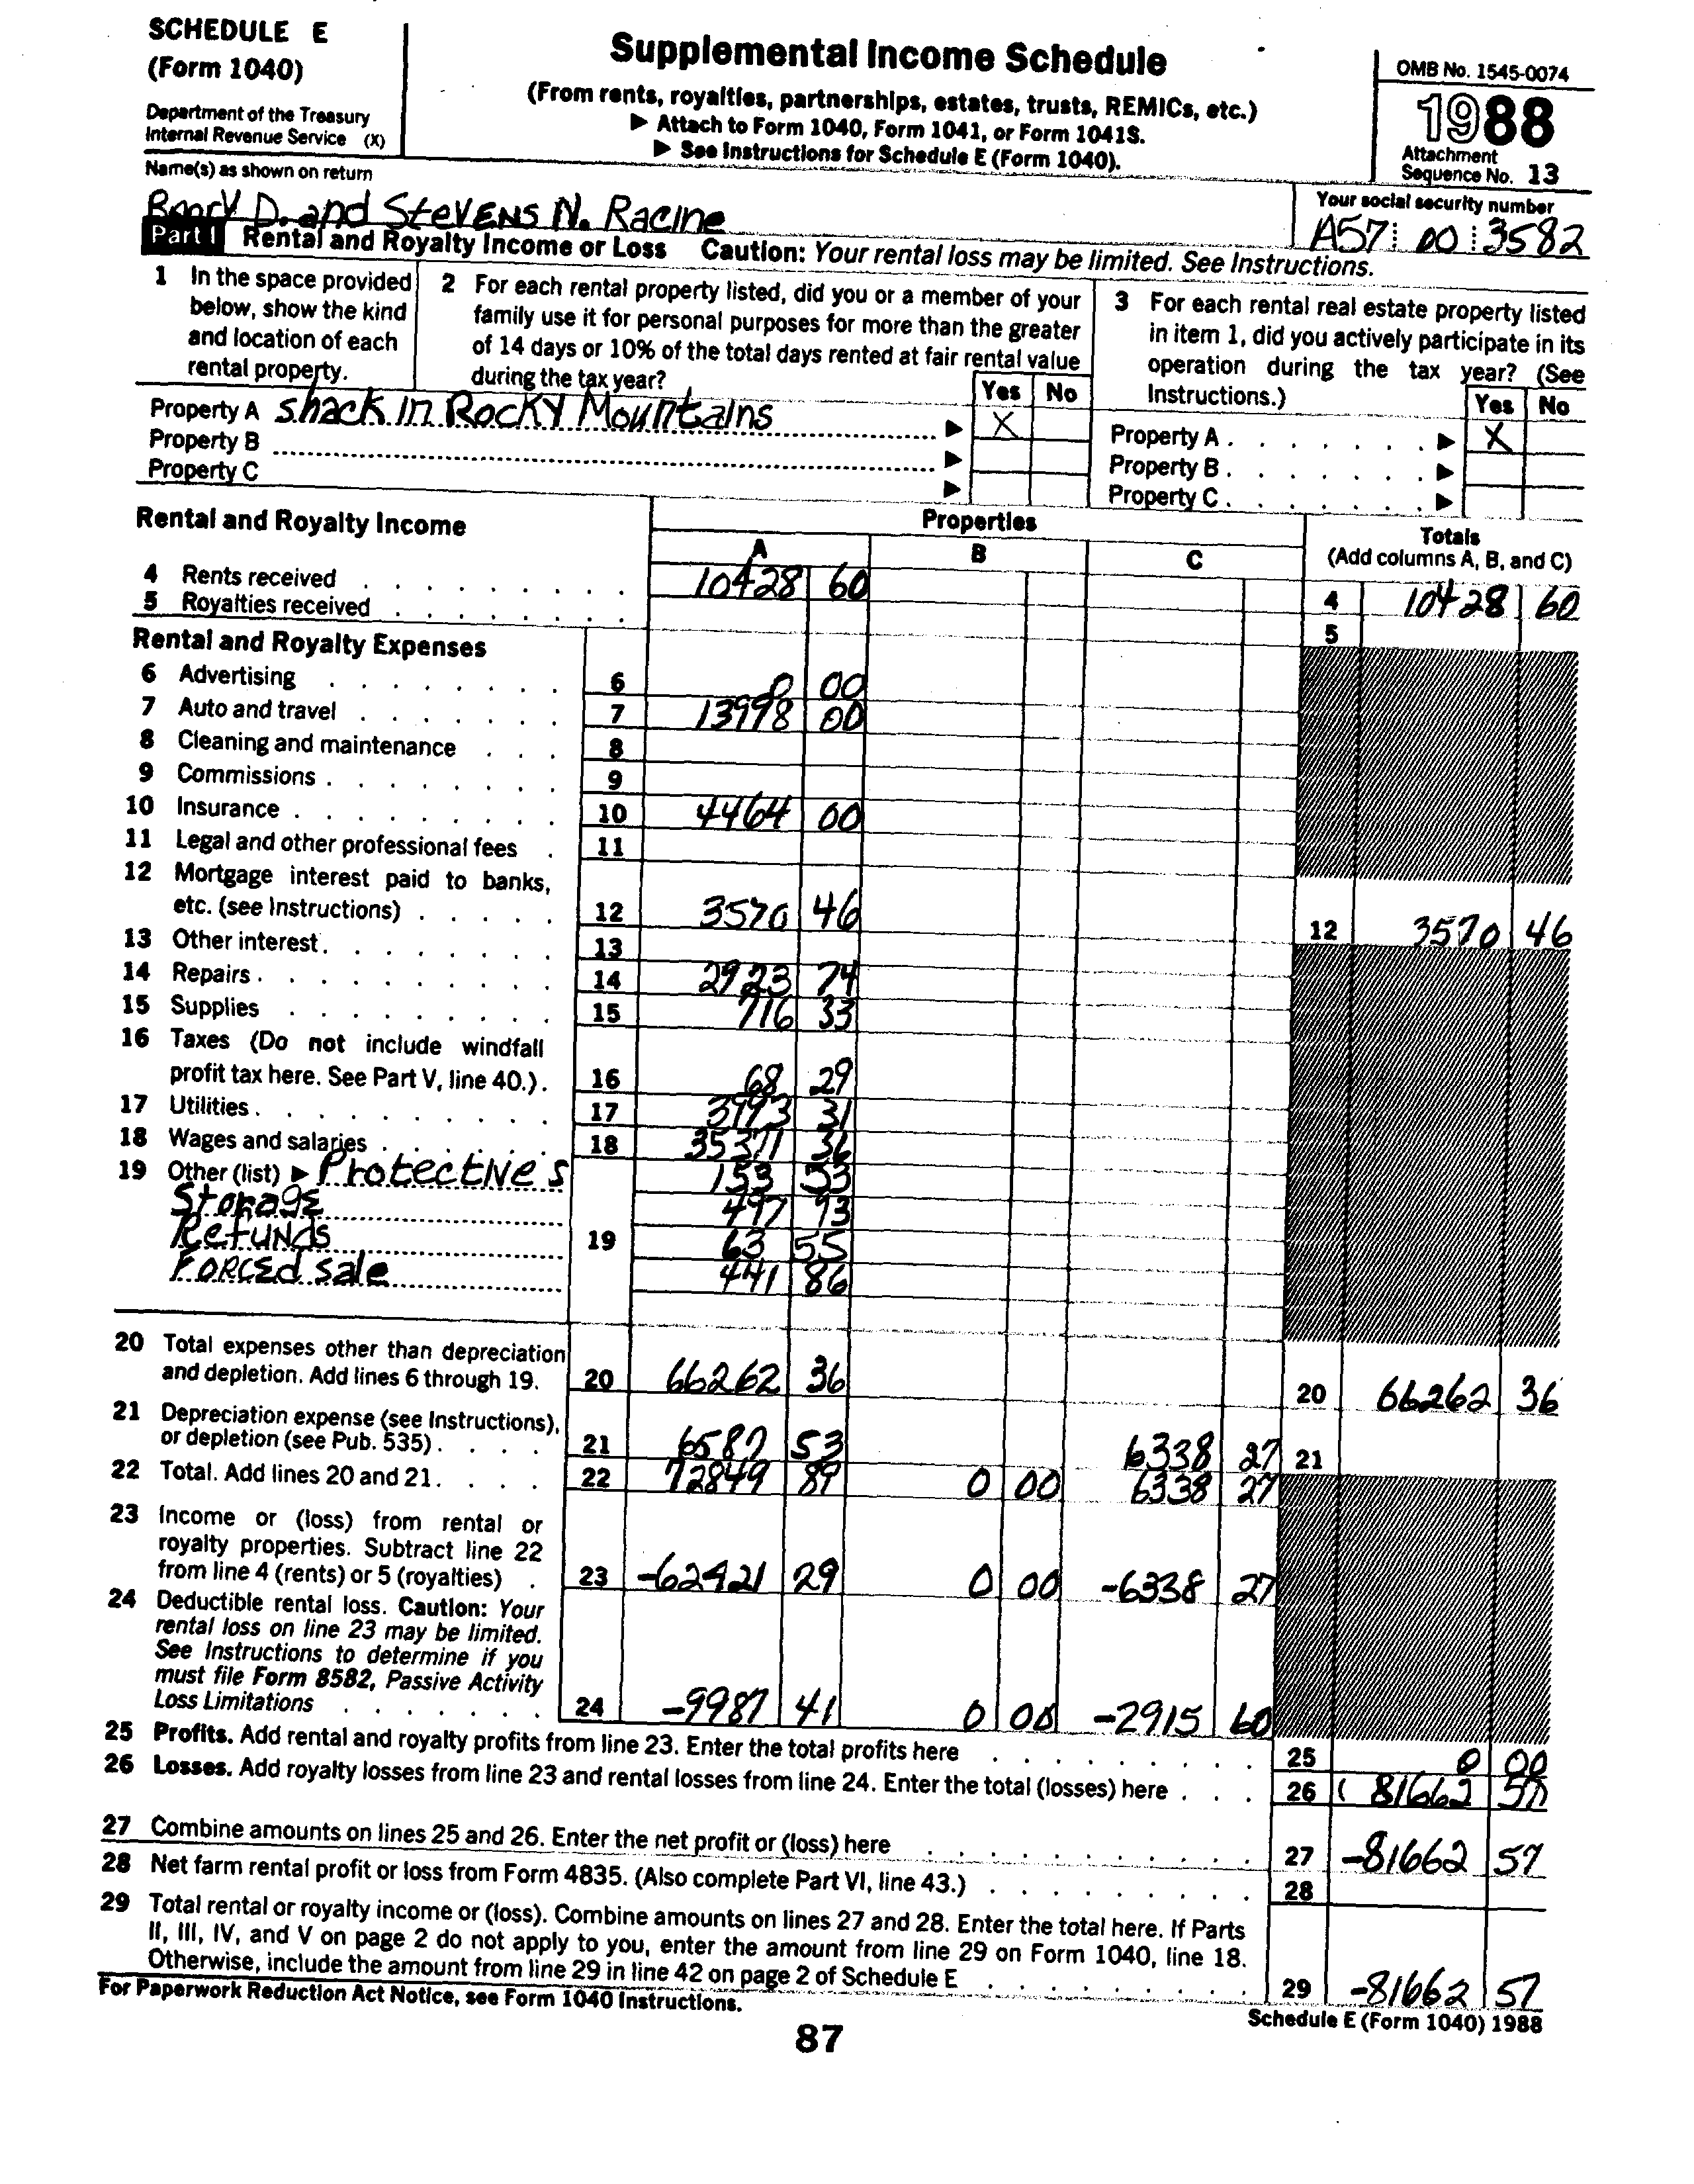 SCHEDULE E
(Form 1040)
Department of the Treasury
Internal Revenue Service (X)
Supplemental Income Schedule
(From rents, royalties, partnerships, estates, trusts, REMICs, etc.)
▶ Attach to Form 1040, Form 1041, or Form 1041S.
▶ See Instructions for Schedule E (Form 1040).
OMB No. 1545-0074
1988
Attachment
Sequence No. 13
Name(s) as shown on return
D. and StEVENS N. Racine
Your social security number
A57 00 3582
Part I Rental and Royalty Income or Loss Caution: Your rental loss may be limited. See Instructions.
1 In the space provided
below, show the kind
and location of each
rental property.
2 For each rental property listed, did you or a member of your
family use it for personal purposes for more than the greater
of 14 days or 10% of the total days rented at fair rental value
during the tax year?
Yes No
3 For each rental real estate property listed
in item 1, did you actively participate in its
operation during the tax year? (See
Instructions.)
Yes No
Property A shack in Rocky Mountains ▶ X
Property B ▶
Property C ▶
Property A ▶ X
Property B ▶
Property C ▶
Rental and Royalty Income
Properties
A B C
Totals
(Add columns A, B, and C)
4 Rents received 10428 60 4 10428 60
5 Royalties received 5
Rental and Royalty Expenses
6 Advertising 6 0 00
7 Auto and travel 7 13998 00
8 Cleaning and maintenance 8
9 Commissions 9
10 Insurance 10 4464 00
11 Legal and other professional fees 11
12 Mortgage interest paid to banks,
etc. (see Instructions) 12 3570 46 12 3570 46
13 Other interest 13
14 Repairs 14 2923 74
15 Supplies 15 716 33
16 Taxes (Do not include windfall
profit tax here. See Part V, line 40.) 16 68 29
17 Utilities 17 3993 31
18 Wages and salaries 18 35371 36
19 Other (list) ▶ Protective s 153 53
Storage 497 93
Refunds 19 63 55
FORCEd sale 441 86
20 Total expenses other than depreciation
and depletion. Add lines 6 through 19. 20 66262 36 20 66262 36
21 Depreciation expense (see Instructions),
or depletion (see Pub. 535) 21 6587 53 6338 27 21
22 Total. Add lines 20 and 21 22 72849 89 0 00 6338 27
23 Income or (loss) from rental or
royalty properties. Subtract line 22
from line 4 (rents) or 5 (royalties) 23 -62421 29 0 00 -6338 27
24 Deductible rental loss. Caution: Your
rental loss on line 23 may be limited.
See Instructions to determine if you
must file Form 8582, Passive Activity
Loss Limitations 24 -9987 41 0 00 -2915 60
25 Profits. Add rental and royalty profits from line 23. Enter the total profits here 25 0 00
26 Losses. Add royalty losses from line 23 and rental losses from line 24. Enter the total (losses) here 26 ( 81662 57
27 Combine amounts on lines 25 and 26. Enter the net profit or (loss) here 27 -81662 57
28 Net farm rental profit or loss from Form 4835. (Also complete Part VI, line 43.) 28
29 Total rental or royalty income or (loss). Combine amounts on lines 27 and 28. Enter the total here. If Parts
II, III, IV, and V on page 2 do not apply to you, enter the amount from line 29 on Form 1040, line 18.
Otherwise, include the amount from line 29 in line 42 on page 2 of Schedule E 29 -81662 57
For Paperwork Reduction Act Notice, see Form 1040 Instructions.
Schedule E (Form 1040) 1988
87